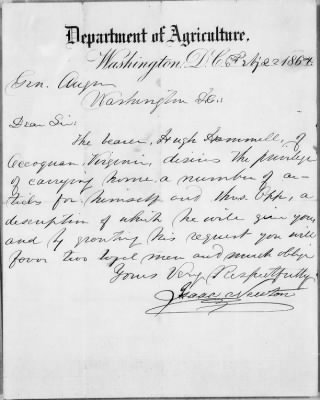 Department of Agriculture.
Washington, D.C. 1864.
Gen. Augur
Washington D.C.:
Dear Sir:
The bearer, Hugh Hammell, of
Occoquan Virginia, desires the privilege
of carrying home a number of ar-
ticles for himself and Thos. , a
description of which he will give you,
and by granting his request you will
favor two loyal men and much oblige
Yours Very Respectfully,
Isaac Newton